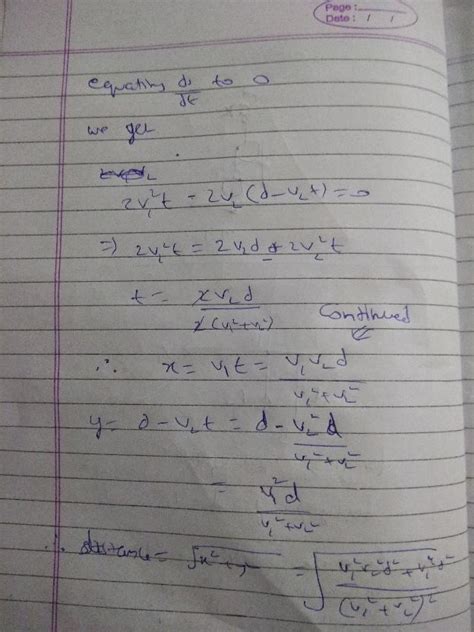 Page :
Date : / /
equating ds/dt to 0
we get
2v₁²t - 2v₂(d-v₂t)=0
⇒ 2v₁²t = 2v₂d - 2v₂²t
t = 2v₂d/2(v₁²+v₂²)
Continued
∴ x = v₁t = v₁v₂d/v₁²+v₂²
y = d - v₂t = d - v₂²d/v₁²+v₂²
= v₁²d/v₁²+v₂²
∴ distance = √x²+y² = √v₁²v₂²d²+v₁⁴d²/(v₁²+v₂²)²